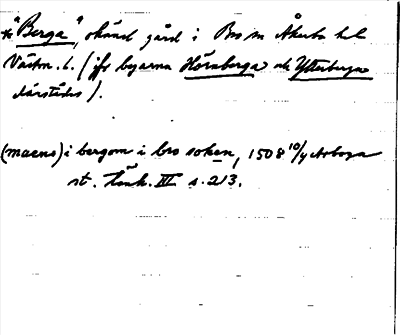 *"Berga", okänd gård i Bro sn Åkerbo hd
Västm. l. (jfr byarna Hörnberga och Ytterberga
därstädes).
(maens) i bergom i bro soken, 1508 10/4 Arboga
st. tänk. III s. 213.